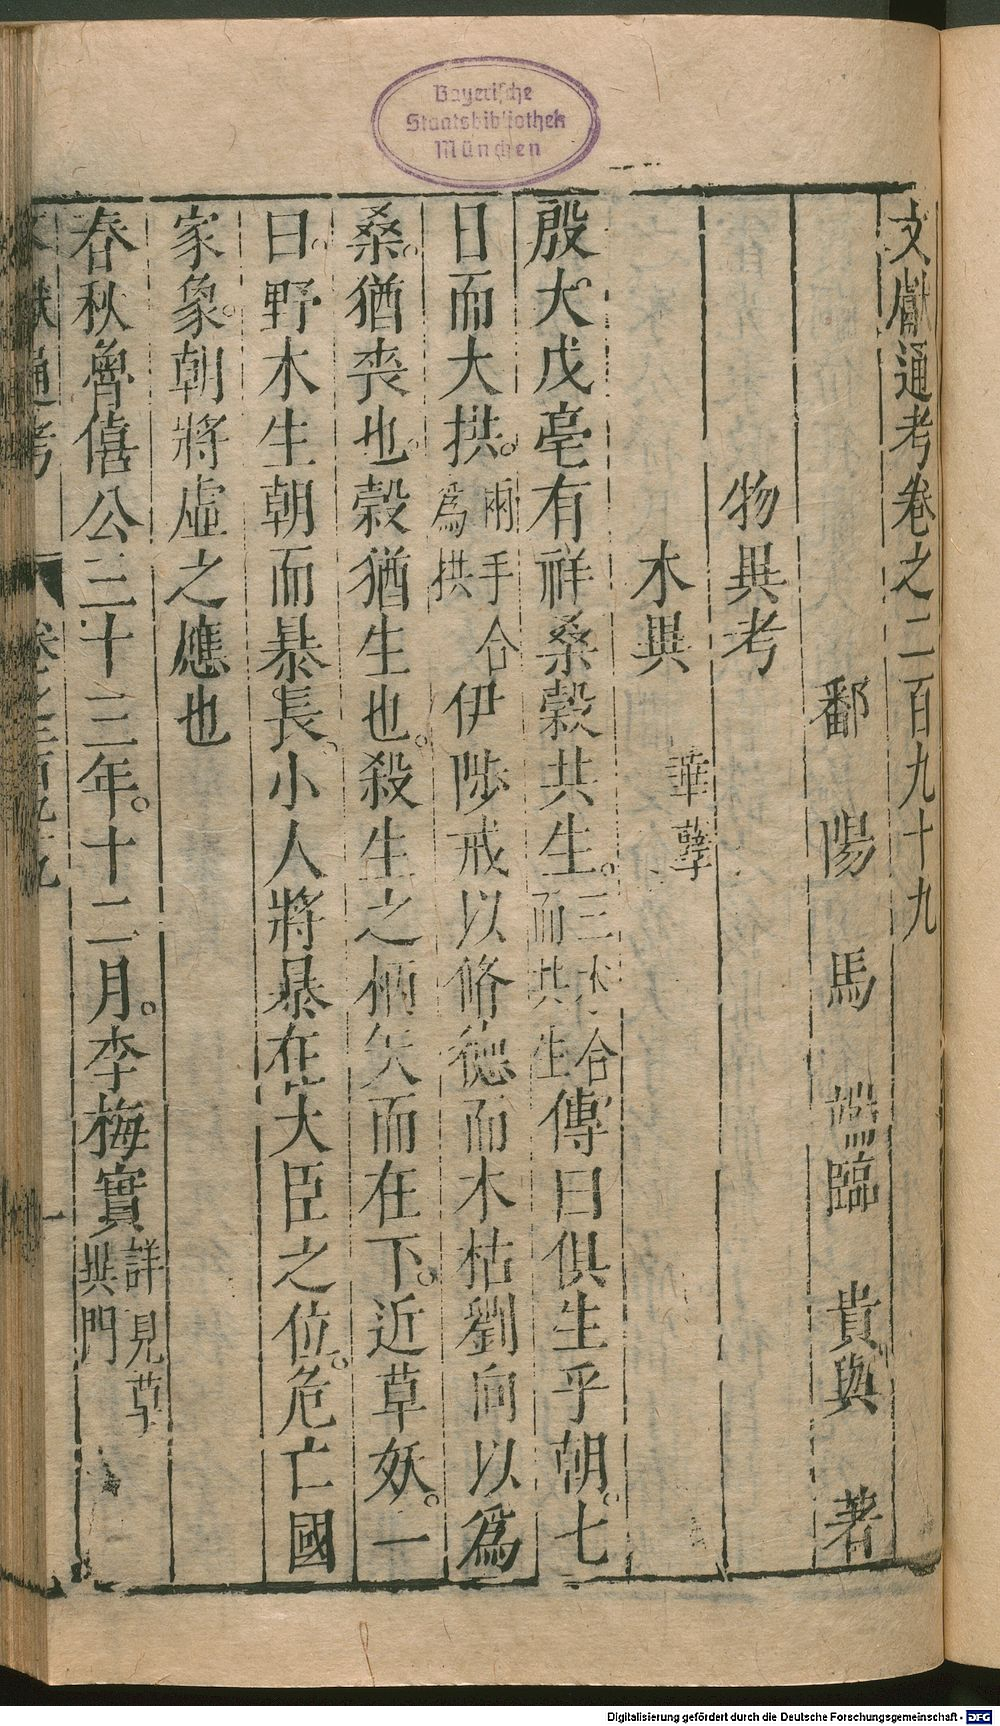 Bayerische
Staatsbibliothek
München
文獻通考卷之二百九十九
鄱陽馬端臨貴與著
物異考
木異
譁孽
殷大戊亳有祥桑榖共生。三木合而共生傳曰俱生乎朝。七
日而大拱。兩手合為拱伊陟戒以脩德而木枯劉向以為
桑。猶喪也。榖猶生也。殺生之柄失而在下。近草妖。一
曰。野木生朝而暴長。小人將暴在大臣之位。危亡國
家象。朝將虛之應也
春秋魯僖公三十三年。十二月。李梅實詳見草異門
文獻通考 卷之二百九十九 一
Digitalisierung gefördert durch die Deutsche Forschungsgemeinschaft - DFG